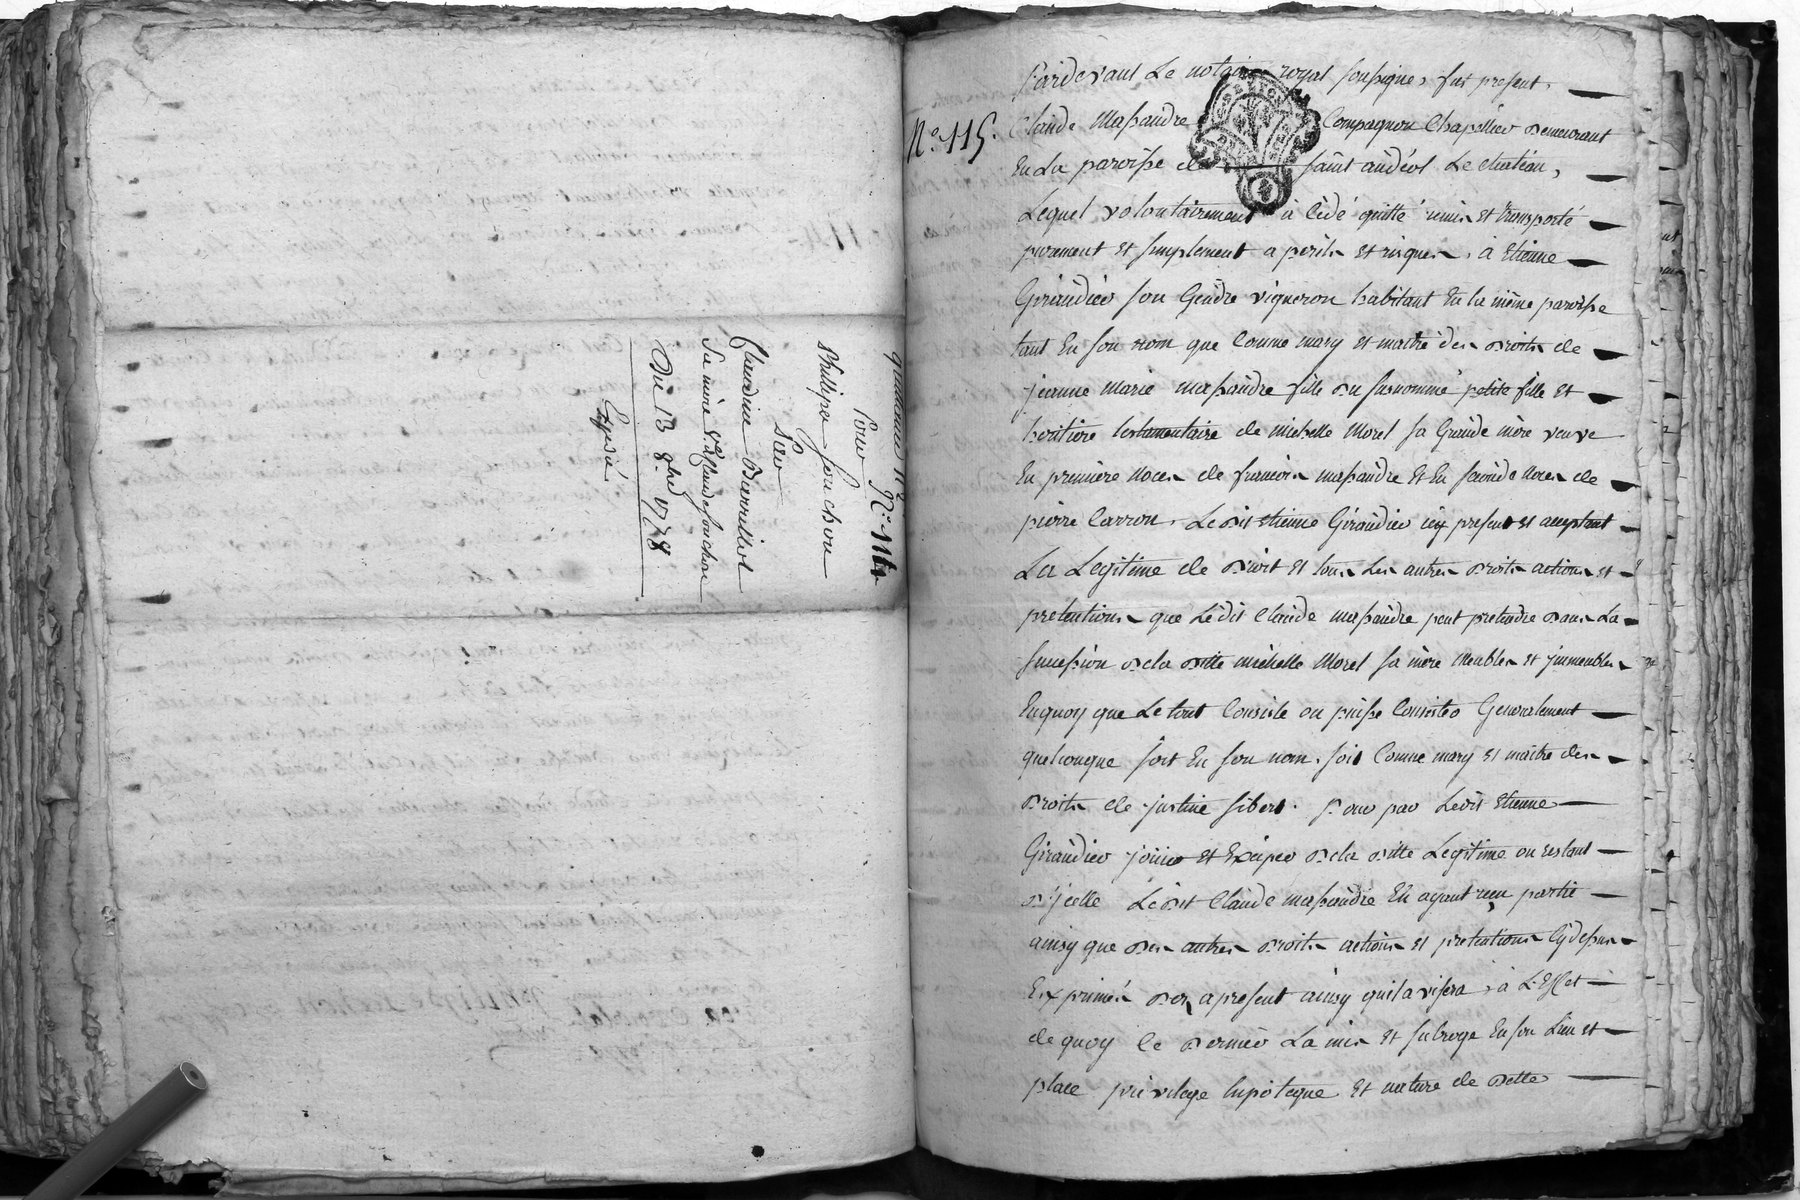 quittance
N.° 114
Pour
Phillipe Souchon
Sur
Claudine Barrillot
Sa mère v.e Claude Souchon
Du 13 8bre 1778
Expédié
N.° 115.
Pardevant Le notaire royal soussigné, fut présent,
Claude Massaudre Compagnon Chapellier demeurant
En La paroisse de saint andéol Le chateau,
Lequel volontairement à cédé quitté remis et transporté
purement et simplement a perils et risques, à Etienne
Giraudier son Gendre vigneron habitant En la même paroisse
tant En son nom que Comme mary et maitre des droits de
jeanne marie massaudre fille du susnommé petite fille et
heritiere testamentaire de michelle Morel sa Grande mère veuve
En premiere Noces de francois massaudre Et En seconde Noces de
pierre Carron, Ledit etienne Giraudier icy present et acceptant
La Legitime de droit et tous Les autres droits actions et
pretentions que Lédit Claude massaudre peut pretendre dans La
succession de la ditte michelle Morel sa mère Meubles et jmmeubles
Enquoy que Le tout Consiste ou puisse Consister Generalement
quelconque soit En son nom, soit Comme mary et maitre des
droits de justine sibert. Pour par Ledit Etienne
Giraudier jouir et Exiper de la ditte Legitime ou restant
d'jcelle Ledit Claude massaudre En ayant reçu partie
ainsy que des autres droits actions et pretentions Cydessus
Exprimés des apresent ainsy quil avisera, à L'Effet
de quoy ce dernier La mis et subrogé En son Lieu et
place privilege hipoteque et nature de dette